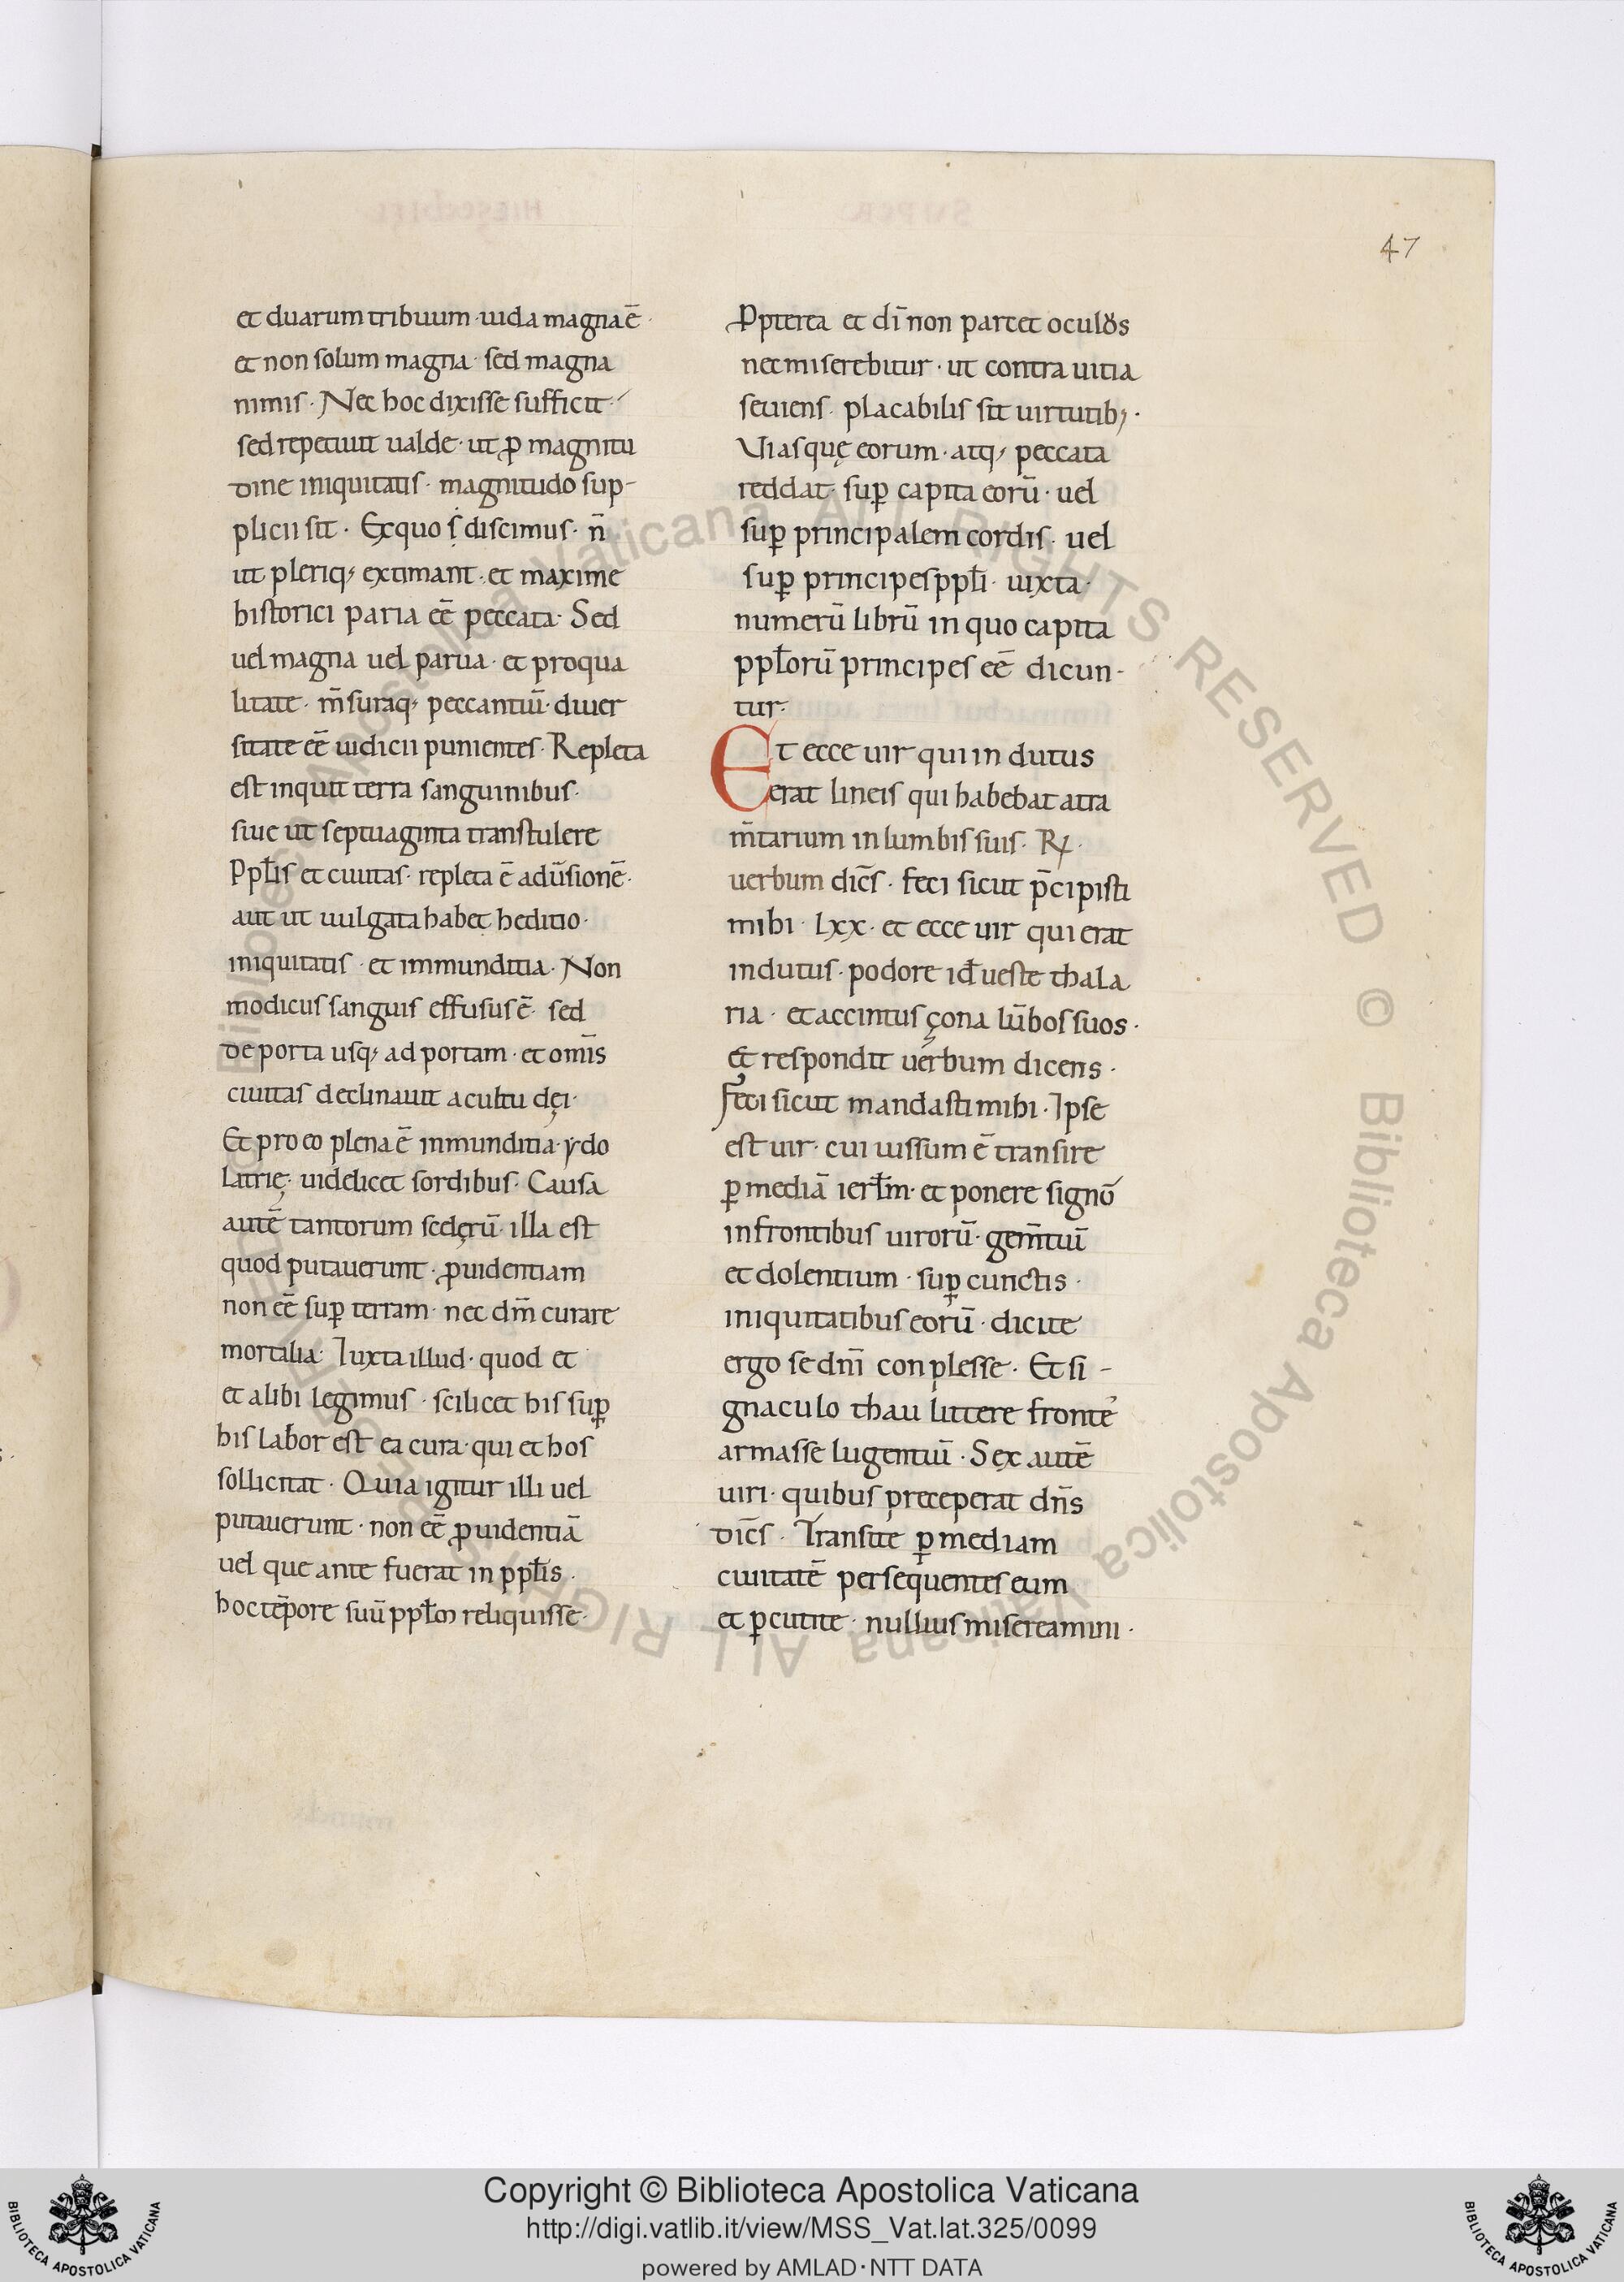 47
et duarum tribuum· iuda magna ē·
et non solum magna· sed magna
nimis· Nec hoc dixisse sufficit·
sed repetiuit ualde· ut ꝓ magnitu
dine iniquitatis· magnitudo sup-
plicii sit· Ex quo discimus· n̄
ut pleriq; extimant· et maxime
historici paria eē peccata· Sed
uel magna uel parua· et pro qua
litate· m̄suraq; peccantiū· diuer
sitate eē iudicii punientes· Repleta
est inquit terra sanguinibus·
siue ut septuaginta transtulere
Ppłis et ciuitas· repleta ē adūsionē·
aut ut uulgata habet heditio·
iniquitatis· et immunditia· Non
modicus sanguis effusus ē· sed
de porta usq; ad portam· et omīs
ciuitas declinauit a cultu dęi·
Et pro eo plena ē inmunditia· ydo
latrię· uidelicet sordibus· Causa
autē tantorum scelerū· illa est
quod putauerunt· ꝓuidentiam
non eē suꝑ terram· nec dm̄ curare
mortalia· Iuxta illud· quod et
et alibi legimus· scilicet his suꝑ
his labor est ea cura· qui et hos
sollicitat· Quia igitur illi uel
putauerunt· non eē ꝓuidentiā
uel que ante fuerat in ppłis·
hoc tēpore suū ppłm reliquisse·
Ppterea et dī non parcet oculus
nec miserebitur· ut contra uitia
seuiens· placabilis sit uirtutib;·
Viasquę eorum· atq; peccata
reddat· suꝑ capita eorū· uel
suꝑ principalem cordis· uel
suꝑ principes ppłi· iuxta·
numerū librū in quo capita
ppłorū principes eē dicun-
tur·
Et ecce uir qui indutus
erat lineis qui habebat atra
m̄tarium in lumbis suis· R̷·
uerbum dicēs· feci sicut p̄cipisti
mihi· lxx· et ecce uir qui erat
indutus· podore id̄ ueste thala
ria· et accintus çona lūbos suos·
Et respondit uerbum dicens·
Feci sicut mandasti mihi· Ipse
est uir· cui iussum ē transire
ꝑ mediā ierłm· et ponere signū
in frontibus uirorū· gem̄tiū
et dolentium· suꝑ cunctis·
iniquitatibus eorū· dicite
ergo se dnī conplesse· Et si-
gnaculo thau littere frontē
armasse lugentiū· Sex autē
uiri· quibus preceperat dn̄s
dicēs· Transite ꝑ mediam
ciuitatē persequentes eum
et ꝑcutite· nullius misereamini·
Copyright © Biblioteca Apostolica Vaticana
http://digi.vatlib.it/view/MSS_Vat.lat.325/0099
powered by AMLAD·NTT DATA
BIBLIOTECA APOSTOLICA VATICANA
BIBLIOTECA APOSTOLICA VATICANA
© Biblioteca Apostolica Vaticana ALL RIGHTS RESERVED © Biblioteca Apostolica Vaticana ALL RIGHTS RESERVED